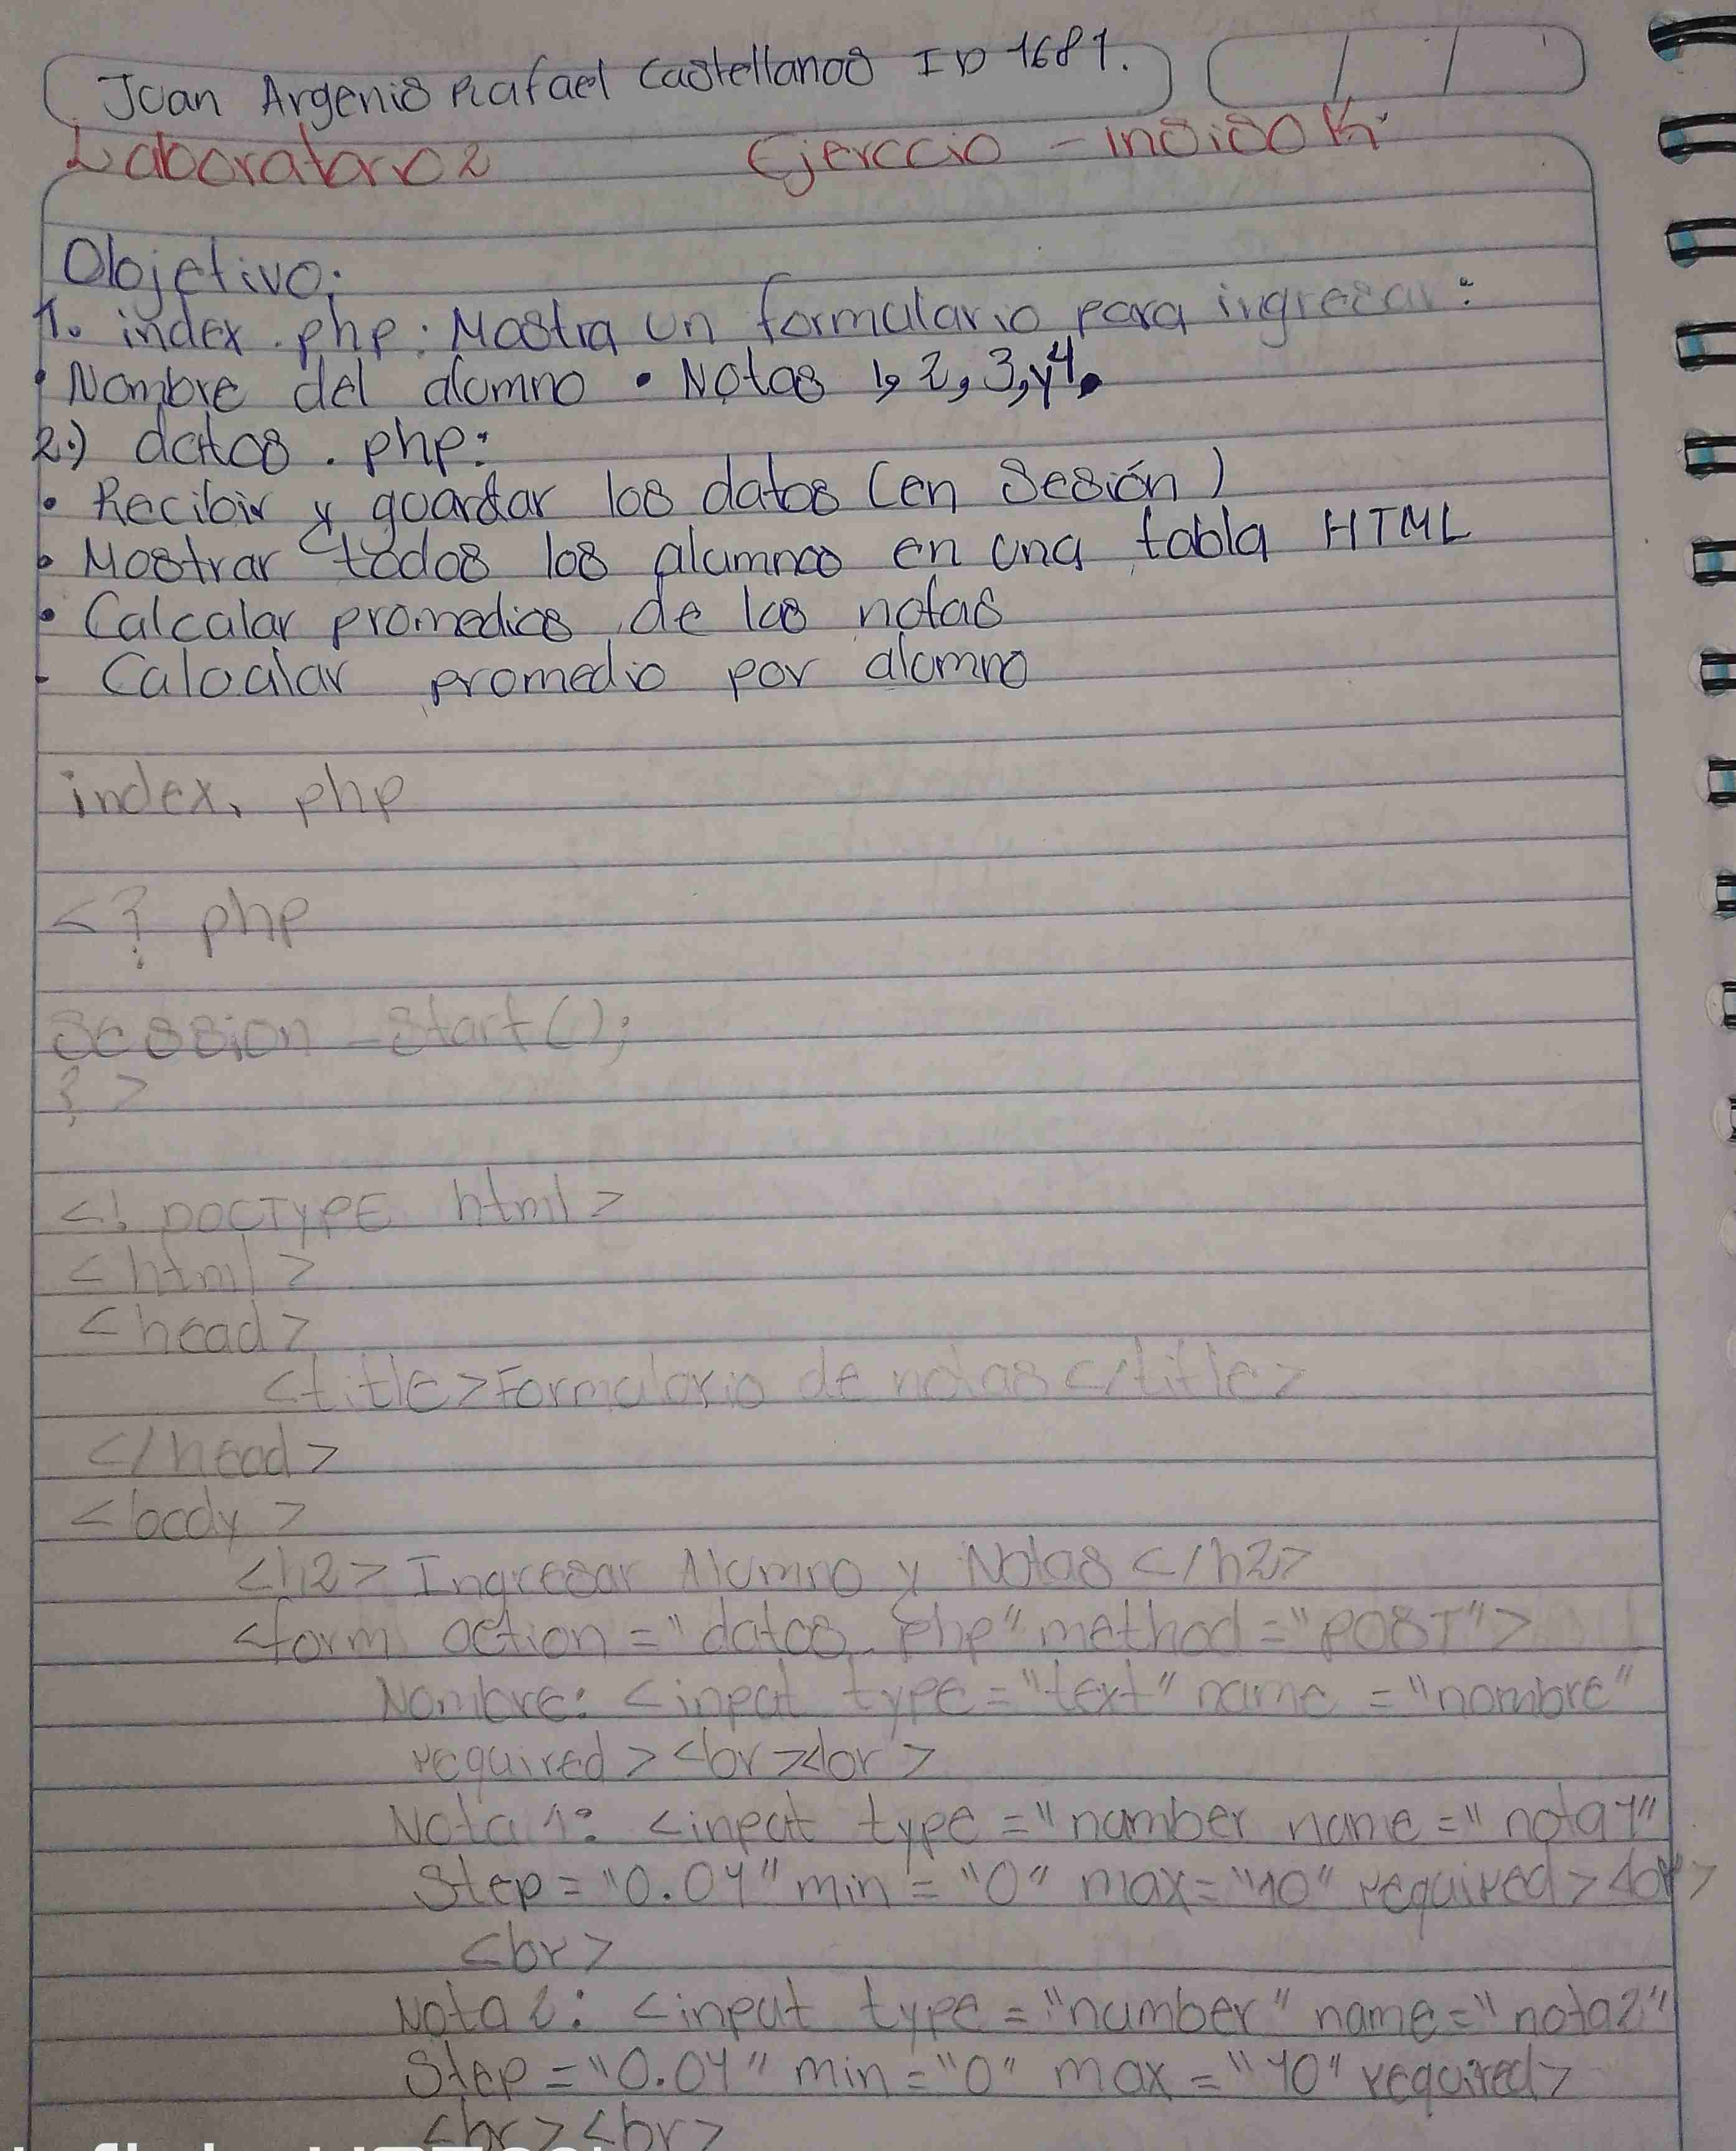 Juan Argenis Rafael Castellanos ID 1681.
Laboratorio 2 Ejerccio -
Objetivo:
1. index.php: Mostra un formulario para ingresar:
• Nombre del alumno • Notas 1, 2, 3, y 4.
2.) datos.php:
• Recibir y guardar los datos (en Sesión)
• Mostrar todos los alumnos en una tabla HTML
• Calcular promedios de las notas
- Calcular promedio por alumno
index. php
<? php
Session_Start();
? >
<! DOCTYPE html>
<html>
<head>
<title>Formulario de notas</title>
</head>
<body>
<h2> Ingresar Alumno y Notas </h2>
<form action = "datos.php" method = "POST">
Nombre: <input type = "text" name = "nombre"
required > <br><br>
Nota 1: <input type = "number name = "nota1"
Step = "0.01" min = "0" max= "10" required> <br>
<br>
Nota 2: <input type = "number" name = "nota2"
Step = "0.01" min = "0" max = "10" required>
<br><br>